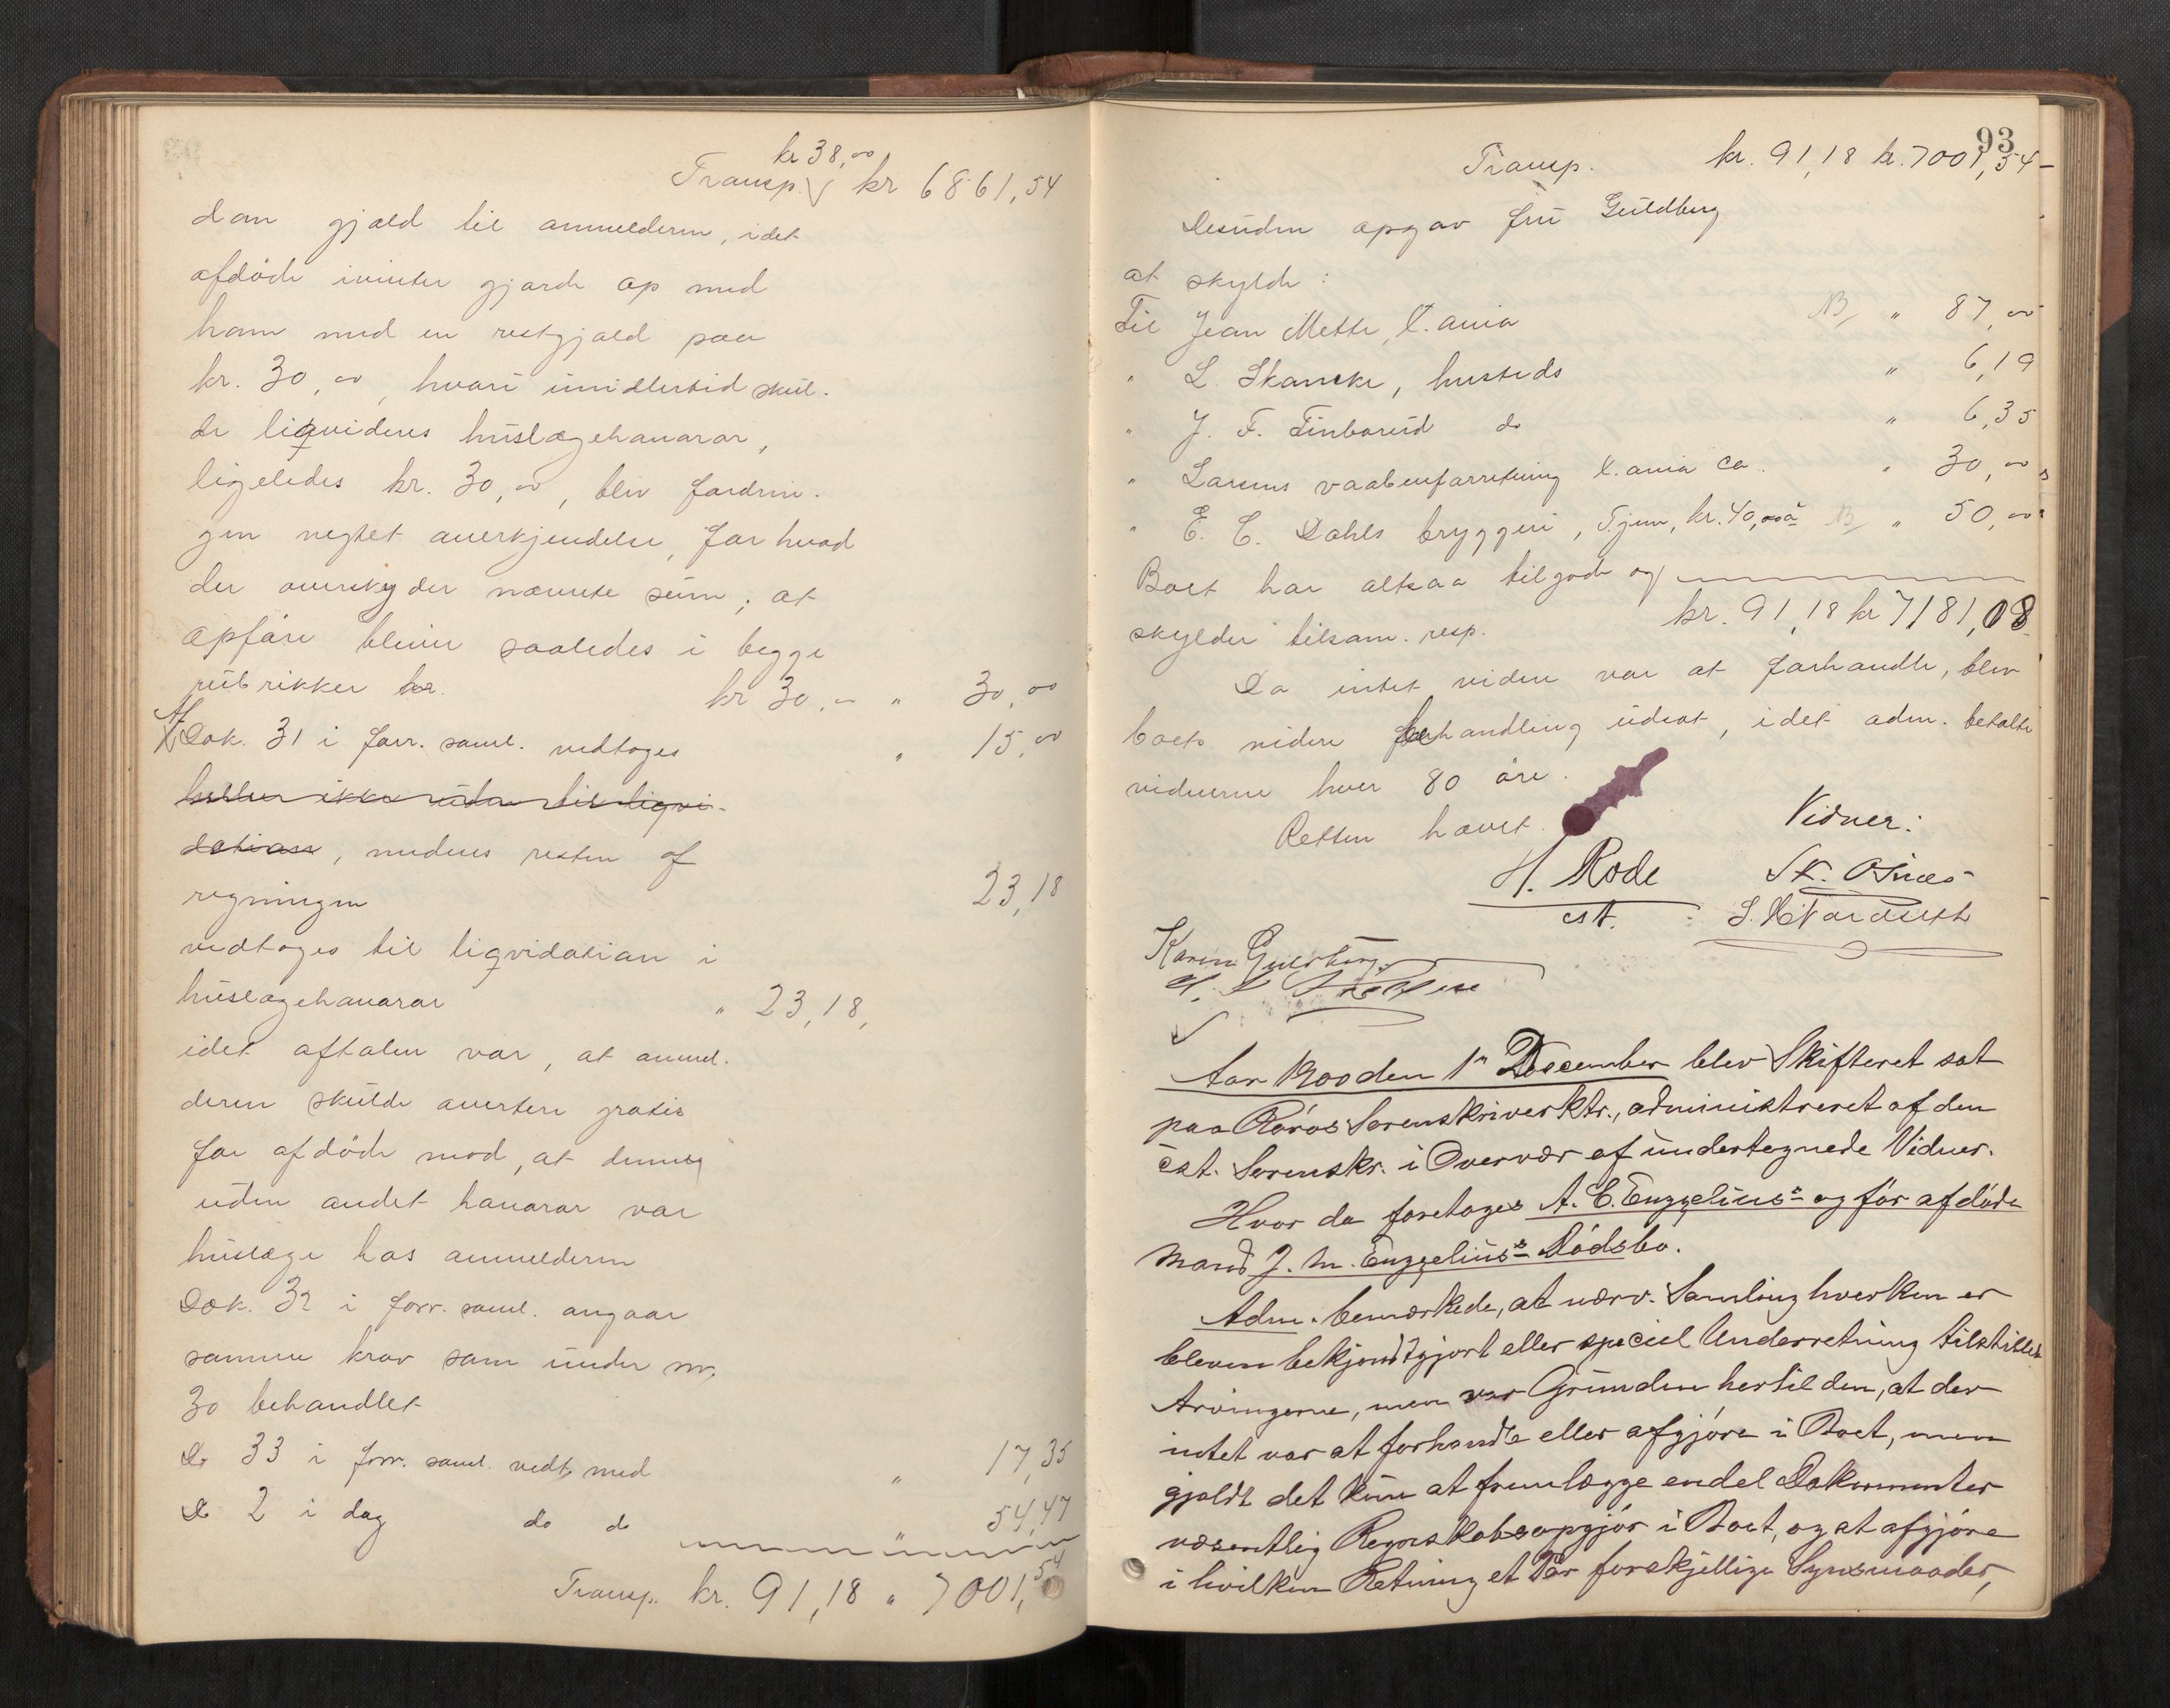 kr 38,00
Transp. kr 6861,54
dom gjæld til anmelderen, idet
afdöde ivinter gjorde op med
ham med en restgjæld paa
kr. 30,00, hvori imidlertid skul-
de liqvideres huslægehonorar,
ligeledes kr. 30,00, blev fordrin-
gen negtet anerkjendelse, for hvad
der overskyder nævnte sum; at
opföre bliver saaledes i begge
rubrikker kr. kr 30,00 " 30,00
Af
Dok. 31 i forr. saml. vedtoges " 15,00
heller ikke uden til liqvi-
dation, medens resten af
regningen 23,18
vedtoges til liqvidation i
huslægehonorar " 23,18,
idet aftalen var, at anmel-
deren skulde avertere gratis
for afdöde mod, at denne
uden andet honorar var
huslæge hos anmelderen
Dok. 32 i forr. saml. angaar
samme krav som under nr.
30 behandlet
Do 33 i forr. saml. vedt. med " 17,35
Do 2 i dag do do " 54,47
Transp. kr. 91,18 " 7001,54
93
Transp. kr. 91,18 kr. 7001,54
Desuden opgav fru Guldberg
at skylde:
Til Jean Mette, X.ania NB " 87,00
" L. Skancke, husteds " 6,19
" J. F. Finborud do " 6,35
" Larsens vaabenforretning X.ania ca. " 30,00
" E. C. Dahls bryggeri, T.jem, kr. 40,00 à NB " 50,00
Boet har altsaa tilgode og
skylder tilsam. resp. kr. 91,18 kr 7181,08
Da intet videre var at forhandle, blev
boets videre behandling udsat, idet adm. betalte
vidnerne hver 80 öre.
Retten hævet.
Vidner:
H. Rode
cst.
Karen Guldberg
Aar 1900 den 1n December blev Skifteret sat
paa Röros Sorenskriverktr., administreret af den
cst. Sorenskr. i Overvær af undertegnede Vidner.
Hvor da foretoges A. C. Engzelius's og för afdöde
Mand J. M. Engzelius's Dödsbo.
Adm. bemærkede, at nærv. Samling hverken er
bleven bekjendtgjort eller speciel Underretning tilstillet
Arvingerne, men var Grunden hertil den, at der
intet var at forhandle eller afgjöre i Boet, men
gjaldt det kun at fremlægge endel Dokumenter
væsentlig Regnskabsopgjör i Boet, og at afgjöre
i hvilken Retning et Par forskjellige Synsmaader,